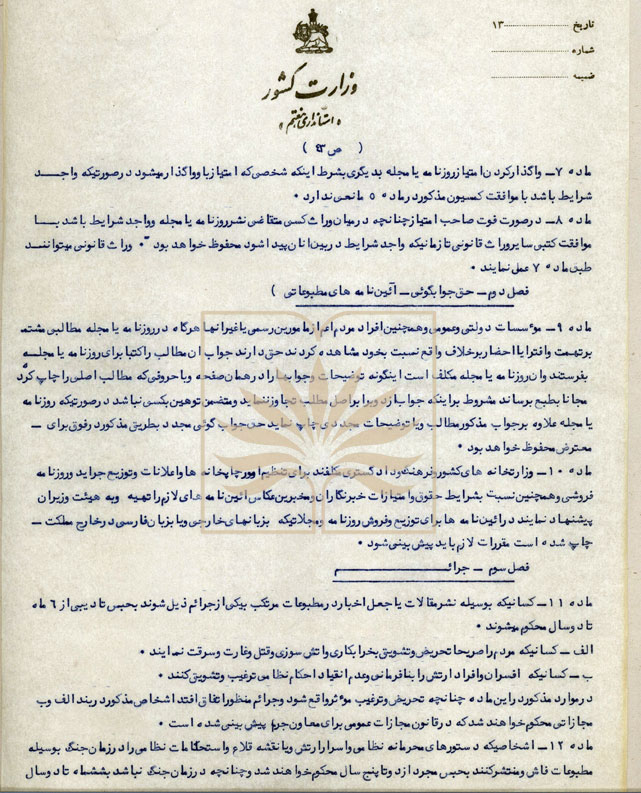 تاریخ ............ ۱۳
شماره ............
ضمیمه ............
وزارت کشور
« استانداری هفتم »
( ص ۹۳ )
ماده ۷ــ واگذار کردن امتیاز روزنامه یا مجله بدیگری بشرط اینکه شخصی که امتیاز باو واگذار میشود در صورتیکه واجـــد
شرایط باشد با موافقت کمسیون مذکور در ماده ۵ مانعی ندارد ۰
ماده ۸ــ در صورت فوت صاحب امتیاز چنانچه در میان وراث کسی متقاضی نشر روزنامه یا مجله و واجد شرایط باشد بـــا
موافقت کتبی سایر وراث قانونی تا زمانیکه واجد شرایط در بین آنان پیدا شود محفوظ خواهد بود ۰ وراث قانونی میتواننـــد
طبق ماده ۷ عمل نمایند ۰
فصل دوم ــ حق جوابگوئی ــ آئین نامه های مطبوعاتی )
ماده ۹ــ مؤسسات دولتی و عمومی و همچنین افراد مردم اعم از مامورین رسمی یا غیر آنها هرگاه در روزنامه یا مجله مطالبی مشتمل
بر تهمت و افترا یا اخبار برخلاف واقع نسبت بخود مشاهده کردند حق دارند جواب آن مطالب را کتبا برای روزنامه یا مجلــه
بفرستند و آن روزنامه یا مجله مکلف است اینگونه توضیحات و جوابها را در همان صفحه و با حروفی که مطالب اصلی را چاپ کرده
مجانا بطبع برساند مشروط بر اینکه جواب از دو برابر اصل مطلب تجاوز ننماید و متضمن توهین بکسی نباشد در صورتیکه روزنامه یا
مجله علاوه بر جواب مذکور مطالب و یا توضیحات مجددی چاپ نماید حق جواب گوئی مجدد بطریق مذکور در فوق برای ــ
معترض محفوظ خواهد بود ۰
ماده ۱۰ــ وزارتخانه های کشور و فرهنگ و دادگستری مکلفند برای تنظیم امور چاپخانه ها و اعلانات و توزیع جراید و روزنامه
فروشی و همچنین نسبت بشرایط حقوق و امتیازات خبرنگاران و مخبرین عکاس آئین نامه های لازم را تهیه و به هیئت وزیران
پیشنهاد نمایند در آئین نامه ها برای توزیع و فروش روزنامه و مجلاتیکه بزبانهای خارجی و یا بزبان فارسی در خارج مملکت ــ
چاپ شده است مقررات لازم باید پیش بینی شود ۰
فصل سوم ــ جرائـــــم
ماده ۱۱ــ کسانیکه بوسیله نشر مقالات یا جعل اخبار در مطبوعات مرتکب یکی از جرائم ذیل شوند بحبس تادیبی از ۶ ماه
تا دو سال محکوم میشوند ۰
الف ــ کسانیکه مردم را صریحا تحریض و تشویق بخرابکاری و آتش سوزی و قتل و غارت و سرقت نمایند ۰
ب ــ کسانیکه افسران و افراد ارتش را بنافرمانی و عدم انقیاد احکام نظامی ترغیب و تشویق کنند ۰
در موارد مذکور در این ماده چنانچه تحریض و ترغیب مؤثر واقع شود و جرائم منظور اتفاق افتد اشخاص مذکور در بند الف و ب
مجازاتی محکوم خواهند شد که در قانون مجازات عمومی برای معاون جرم پیش بینی شده است ۰
ماده ۱۲ــ اشخاصیکه دستورهای محرمانه نظامی و اسرار ارتش و یا نقشه قلاع و استحکامات نظامی را در زمان جنگ بوسیله
مطبوعات فاش و منتشر کنند بحبس مجرد از دو تا پنج سال محکوم خواهند شد و چنانچه در زمان جنگ نباشد بششماه تا دو سال